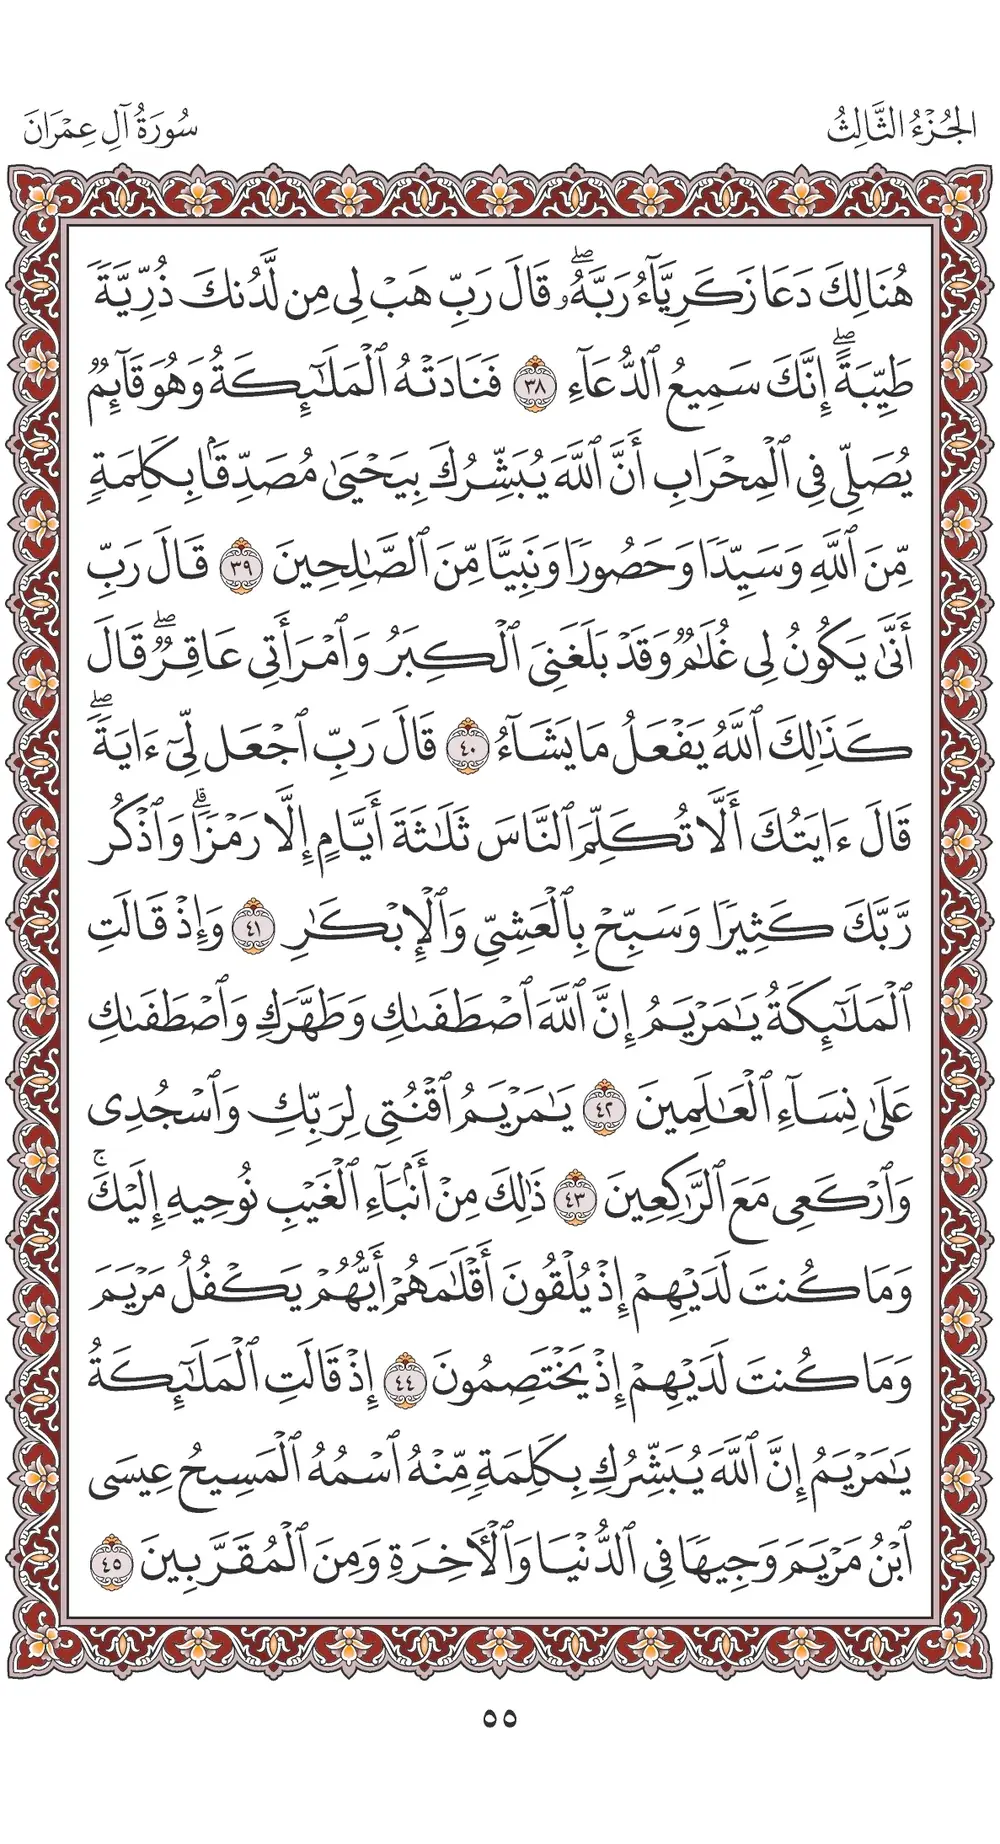 الجُزْءُ الثَّالِثُ
سُورَةُ آلِ عِمْرَانَ
هُنَالِكَ دَعَا زَكَرِيَّآءُ رَبَّهُۥۖ قَالَ رَبِّ هَبْ لِى مِن لَّدُنكَ ذُرِّيَّةً
طَيِّبَةًۖ إِنَّكَ سَمِيعُ ٱلدُّعَآءِ ٣٨ فَنَادَتْهُ ٱلْمَلَٰٓئِكَةُ وَهُوَ قَآئِمٌ
يُصَلِّى فِى ٱلْمِحْرَابِ أَنَّ ٱللَّهَ يُبَشِّرُكَ بِيَحْيَىٰ مُصَدِّقَۢا بِكَلِمَةٍ
مِّنَ ٱللَّهِ وَسَيِّدًا وَحَصُورًا وَنَبِيًّا مِّنَ ٱلصَّٰلِحِينَ ٣٩ قَالَ رَبِّ
أَنَّىٰ يَكُونُ لِى غُلَٰمٌ وَقَدْ بَلَغَنِىَ ٱلْكِبَرُ وَٱمْرَأَتِى عَاقِرٌۖ قَالَ
كَذَٰلِكَ ٱللَّهُ يَفْعَلُ مَا يَشَآءُ ٤٠ قَالَ رَبِّ ٱجْعَل لِّىٓ ءَايَةًۖ
قَالَ ءَايَتُكَ أَلَّا تُكَلِّمَ ٱلنَّاسَ ثَلَٰثَةَ أَيَّامٍ إِلَّا رَمْزًاۗ وَٱذْكُر
رَّبَّكَ كَثِيرًا وَسَبِّحْ بِٱلْعَشِىِّ وَٱلْإِبْكَٰرِ ٤١ وَإِذْ قَالَتِ
ٱلْمَلَٰٓئِكَةُ يَٰمَرْيَمُ إِنَّ ٱللَّهَ ٱصْطَفَىٰكِ وَطَهَّرَكِ وَٱصْطَفَىٰكِ
عَلَىٰ نِسَآءِ ٱلْعَٰلَمِينَ ٤٢ يَٰمَرْيَمُ ٱقْنُتِى لِرَبِّكِ وَٱسْجُدِى
وَٱرْكَعِى مَعَ ٱلرَّٰكِعِينَ ٤٣ ذَٰلِكَ مِنْ أَنۢبَآءِ ٱلْغَيْبِ نُوحِيهِ إِلَيْكَۚ
وَمَا كُنتَ لَدَيْهِمْ إِذْ يُلْقُونَ أَقْلَٰمَهُمْ أَيُّهُمْ يَكْفُلُ مَرْيَمَ
وَمَا كُنتَ لَدَيْهِمْ إِذْ يَخْتَصِمُونَ ٤٤ إِذْ قَالَتِ ٱلْمَلَٰٓئِكَةُ
يَٰمَرْيَمُ إِنَّ ٱللَّهَ يُبَشِّرُكِ بِكَلِمَةٍ مِّنْهُ ٱسْمُهُ ٱلْمَسِيحُ عِيسَى
ٱبْنُ مَرْيَمَ وَجِيهًا فِى ٱلدُّنْيَا وَٱلْءَاخِرَةِ وَمِنَ ٱلْمُقَرَّبِينَ ٤٥
٥٥